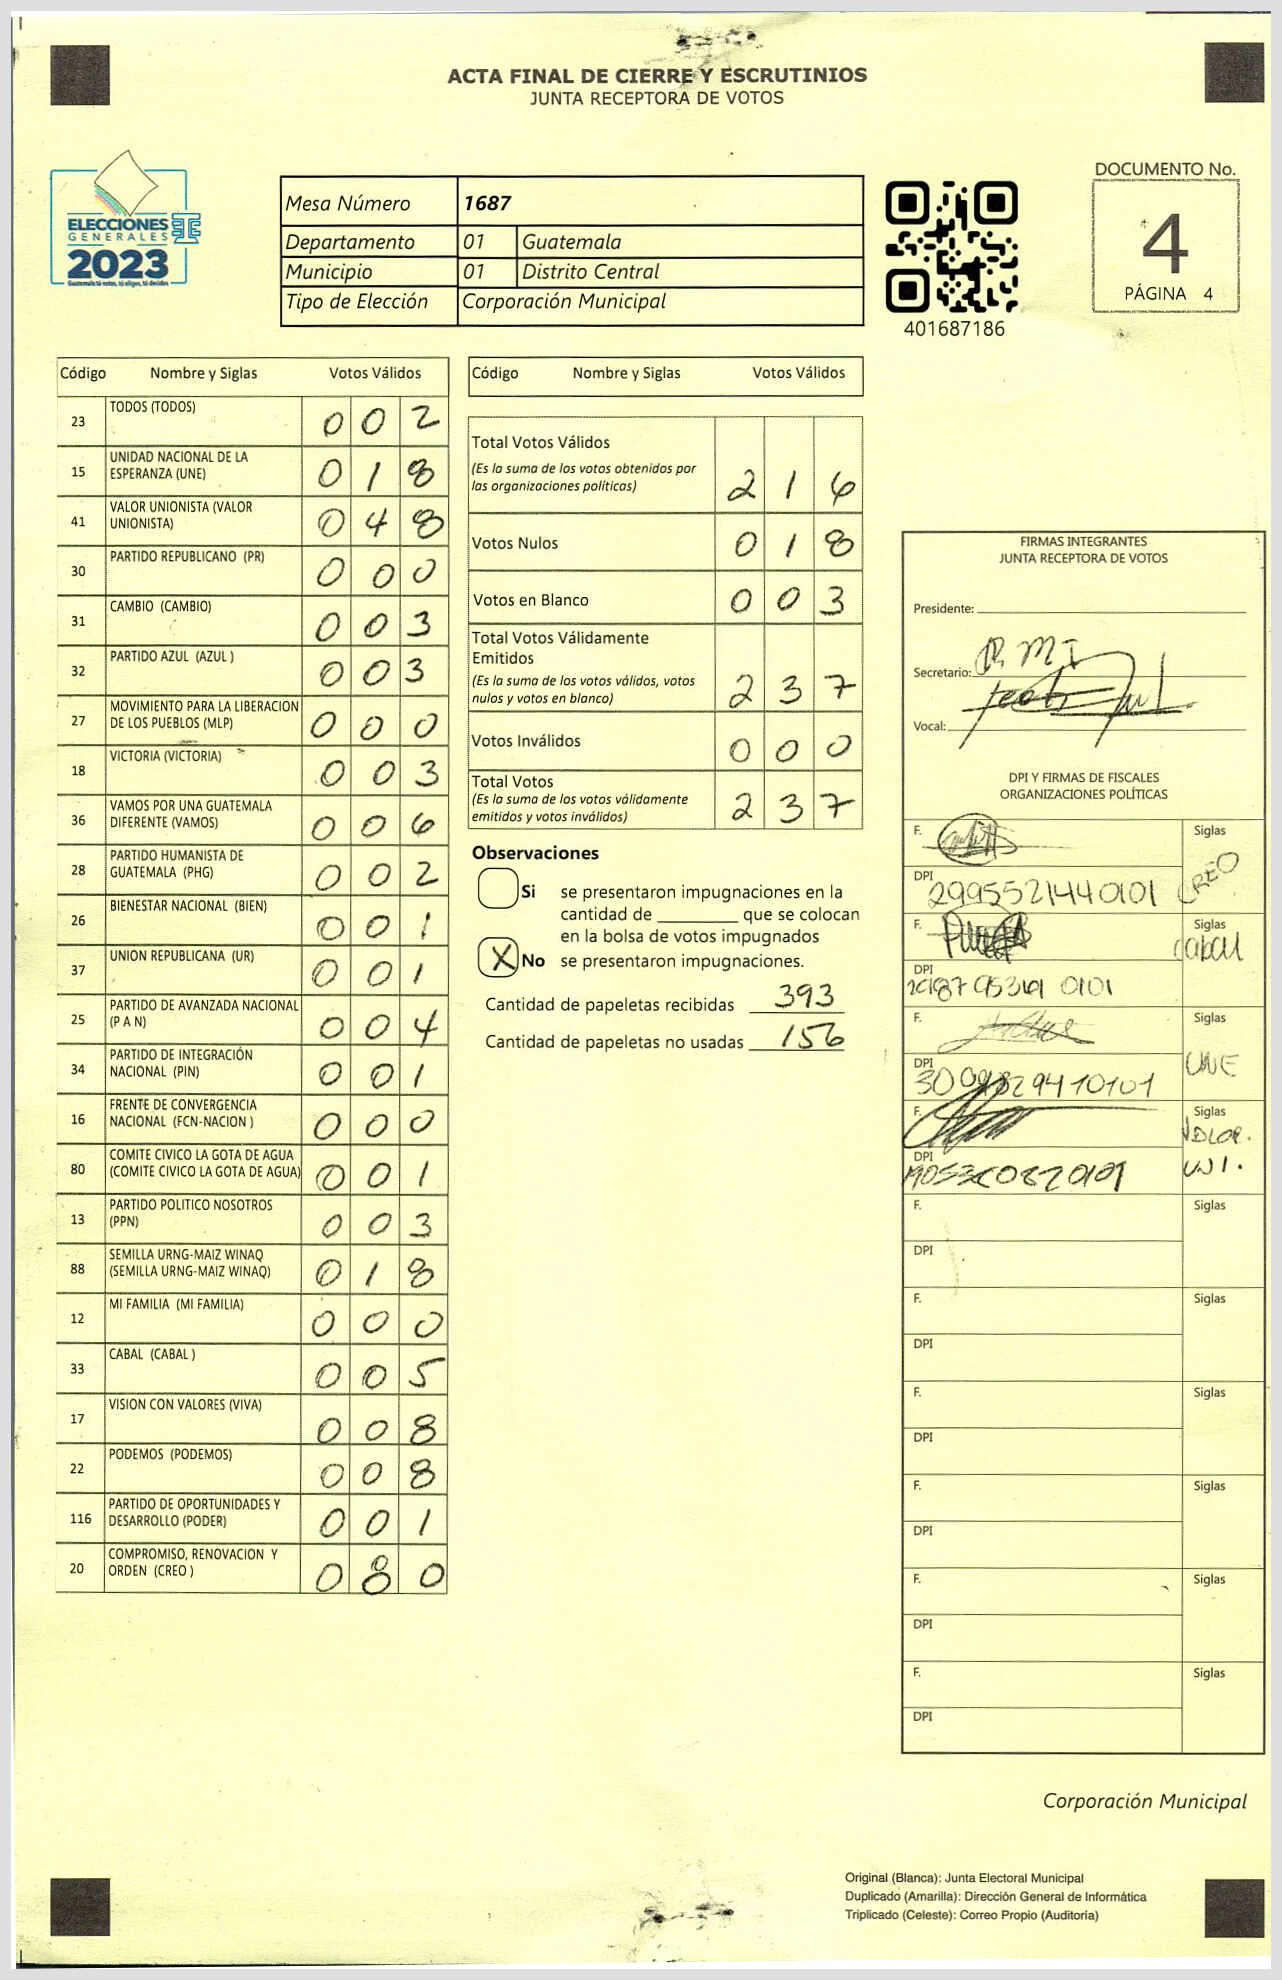 ACTA FINAL DE CIERRE Y ESCRUTINIOS
JUNTA RECEPTORA DE VOTOS
ELECCIONES
GENERALES
2023
Guatemala tú votas, tú eliges, tú decides
Mesa Número 1687
Departamento 01 Guatemala
Municipio 01 Distrito Central
Tipo de Elección Corporación Municipal
401687186
DOCUMENTO No.
4
PÁGINA 4
Código Nombre y Siglas Votos Válidos
23 TODOS (TODOS) 0 0 2
15 UNIDAD NACIONAL DE LA
ESPERANZA (UNE) 0 1 8
41 VALOR UNIONISTA (VALOR
UNIONISTA) 0 4 8
30 PARTIDO REPUBLICANO (PR) 0 0 0
31 CAMBIO (CAMBIO) 0 0 3
32 PARTIDO AZUL (AZUL ) 0 0 3
27 MOVIMIENTO PARA LA LIBERACION
DE LOS PUEBLOS (MLP) 0 0 0
18 VICTORIA (VICTORIA) 0 0 3
36 VAMOS POR UNA GUATEMALA
DIFERENTE (VAMOS) 0 0 6
28 PARTIDO HUMANISTA DE
GUATEMALA (PHG) 0 0 2
26 BIENESTAR NACIONAL (BIEN) 0 0 1
37 UNION REPUBLICANA (UR) 0 0 1
25 PARTIDO DE AVANZADA NACIONAL
(P A N) 0 0 4
34 PARTIDO DE INTEGRACIÓN
NACIONAL (PIN) 0 0 1
16 FRENTE DE CONVERGENCIA
NACIONAL (FCN-NACION ) 0 0 0
80 COMITE CIVICO LA GOTA DE AGUA
(COMITE CIVICO LA GOTA DE AGUA) 0 0 1
13 PARTIDO POLITICO NOSOTROS
(PPN) 0 0 3
88 SEMILLA URNG-MAIZ WINAQ
(SEMILLA URNG-MAIZ WINAQ) 0 1 8
12 MI FAMILIA (MI FAMILIA) 0 0 0
33 CABAL (CABAL ) 0 0 5
17 VISION CON VALORES (VIVA) 0 0 8
22 PODEMOS (PODEMOS) 0 0 8
116 PARTIDO DE OPORTUNIDADES Y
DESARROLLO (PODER) 0 0 1
20 COMPROMISO, RENOVACION Y
ORDEN (CREO ) 0 8 0
Código Nombre y Siglas Votos Válidos
Total Votos Válidos
(Es la suma de los votos obtenidos por
las organizaciones políticas) 2 1 6
Votos Nulos 0 1 8
Votos en Blanco 0 0 3
Total Votos Válidamente
Emitidos
(Es la suma de los votos válidos, votos
nulos y votos en blanco) 2 3 7
Votos Inválidos 0 0 0
Total Votos
(Es la suma de los votos válidamente
emitidos y votos inválidos) 2 3 7
Observaciones
Si se presentaron impugnaciones en la
cantidad de ________ que se colocan
en la bolsa de votos impugnados
X No se presentaron impugnaciones.
Cantidad de papeletas recibidas 393
Cantidad de papeletas no usadas 156
FIRMAS INTEGRANTES
JUNTA RECEPTORA DE VOTOS
Presidente:
Secretario:
Vocal:
DPI Y FIRMAS DE FISCALES
ORGANIZACIONES POLÍTICAS
F. Siglas
CREO
DPI
2995521440101
F. Siglas
CABAL
DPI
F. Siglas
UNE
DPI
F. Siglas
VALOR.
UNI.
DPI
F. Siglas
DPI
F. Siglas
DPI
F. Siglas
DPI
F. Siglas
DPI
F. Siglas
DPI
F. Siglas
DPI
Corporación Municipal
Original (Blanca): Junta Electoral Municipal
Duplicado (Amarilla): Dirección General de Informática
Triplicado (Celeste): Correo Propio (Auditoría)